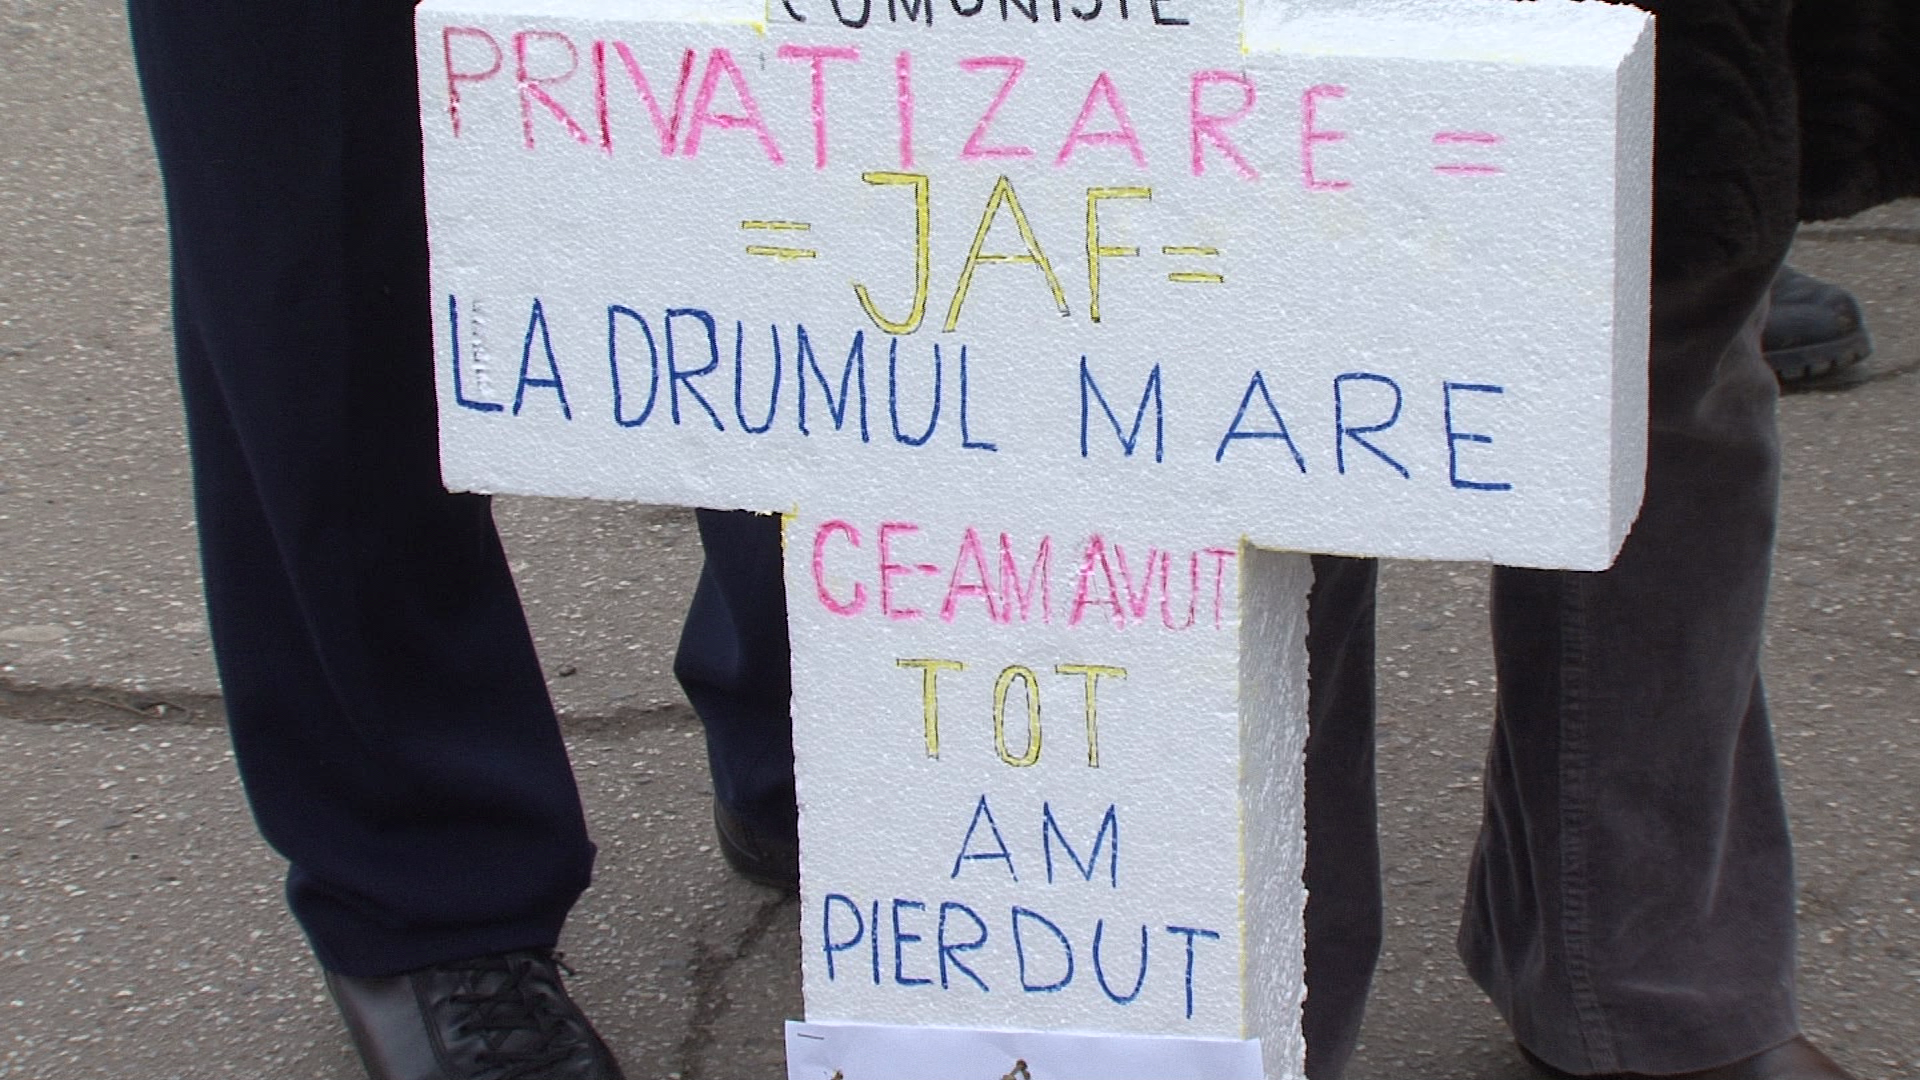 COMUNISTE
PRIVATIZARE =
= JAF =
LA DRUMUL MARE
CE-AM AVUT
TOT
AM
PIERDUT